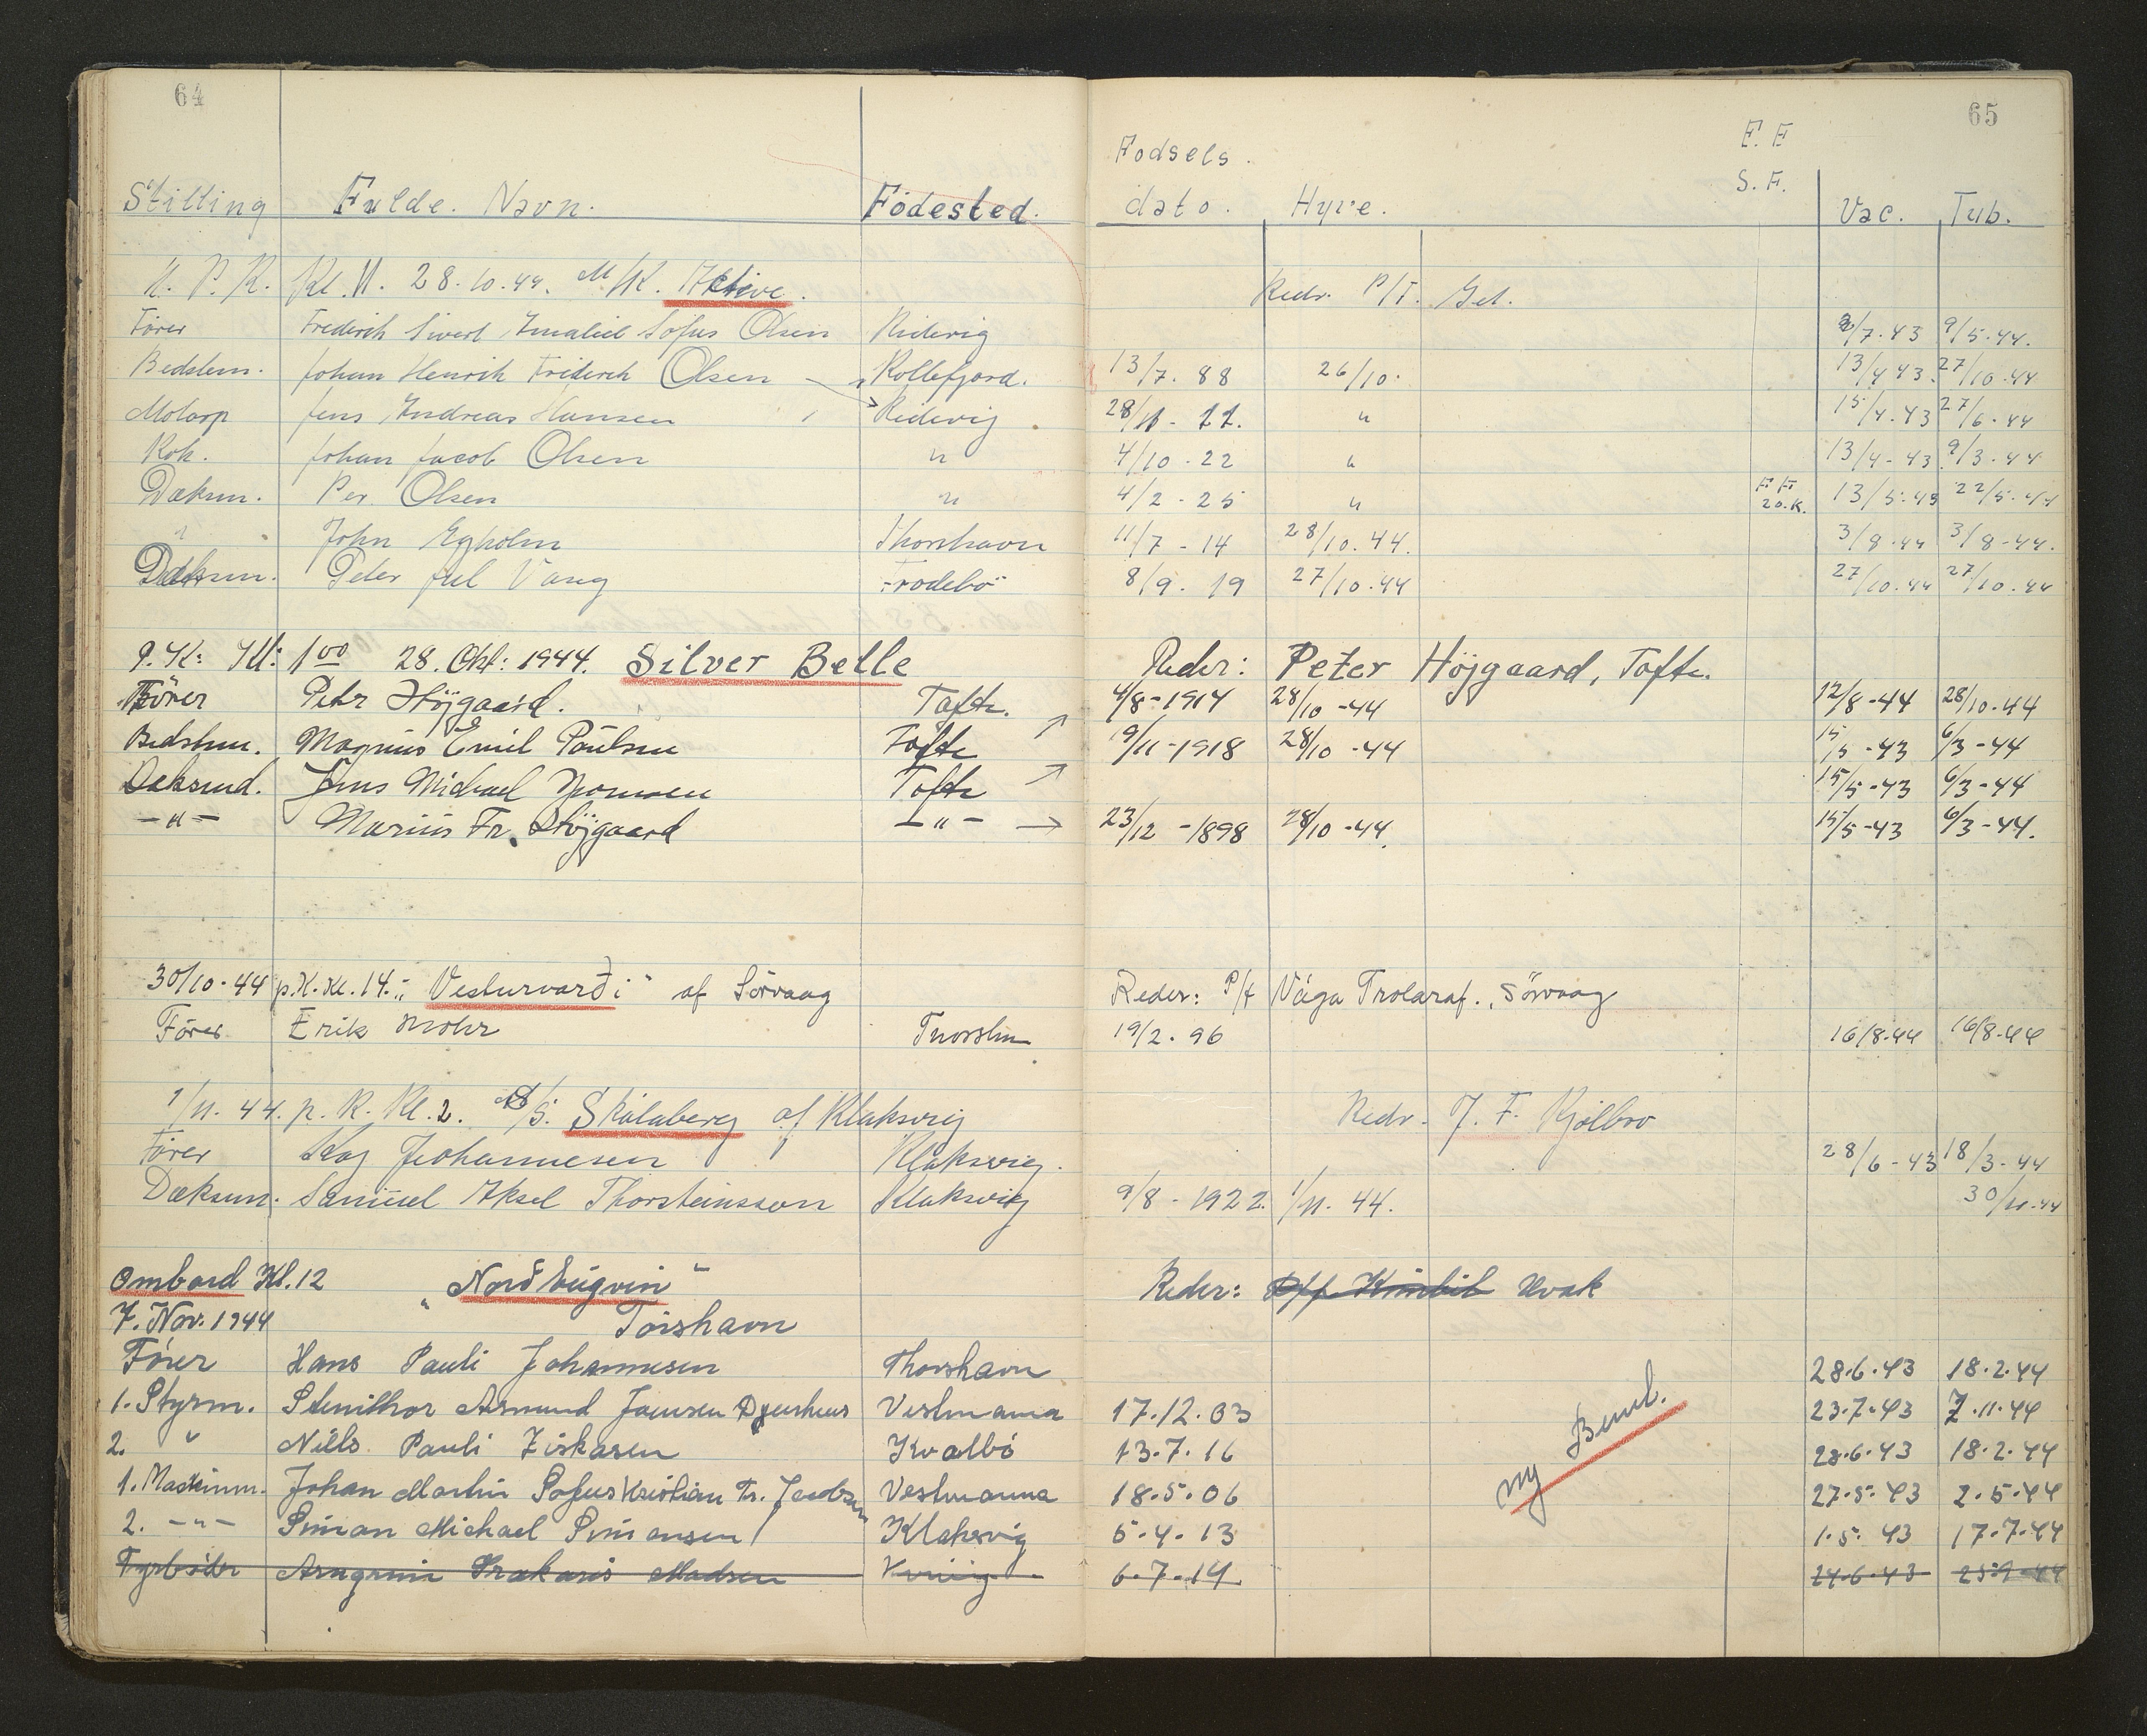 64
65
Fodsels. E. E
S. F.
Stilling Fulde. Navn. Födested. dato. Hyre. Vac. Tub.
P. K. Kl. 11. 28.10.44. M/K. Aktive. Redr. P/F.
Förer Frederik Sivert Sofus Olsen 9/5.44.
Bedstem. Johan Henrik Friderik Olsen Kollefjord. 13/7. 88 26/10. 13/4 43. 27/10.44
Motorp Jens Andreas Hansen 28/11. 15/4.43 27/6.44
Kok. Johan Jacob Olsen " 4/10.22 " 13/4-43 9/3-44
Dæksm. Per Olsen " 4/2-25 " F. F. 20.K. 13/5-43 22/5-44
" John Egholm Thorshavn 11/7-14 28/10.44. 3/8.44 3/8-44.
Dæksm. Peter Jul Vang Frodebö 8/9. 19 27/10.44 27/10.44 27/10.44
P. K: Kl: 1⁰⁰ 28. Okt: 1944. Silver Belle Reder: Peter Höjgaard, Tofte.
Förer Petr Höjgaard. Tofte. 4/8-1914 28/10-44 12/8-44 28/10-44
Bedstem. Magnus Emil Poulsen Tofte 19/11-1918 28/10-44 15/5-43 6/3-44
Deksmd. Jens Michael Tofte 15/5-43 6/3-44
-"- Marius Fr. Höjgaard -"- 23/12-1898 28/10-44. 15/5-43 6/3-44.
30/10-44 p.K. Kl. 14. "Vesturvarði" af Sörvaag Reder: P/f Vága Trolaraf., Sörvaag
Förer Erik Mohr Thorshn 19/2. 96 16/8-44 16/8-44
1/11. 44. p. K. Kl. 2. S/S. Skálaberg af Klaksvig Redr. J. F. Kjölbro
Förer Kaj Johannesen Klaksvig. 28/6-43 18/3-44
Dæksm. Samuel Aksel Thorsteinsson Klaksvig 9/8-1922. 1/11. 44. 30/11-44
Ombord Kl. 12 "Norðhúgvin" Reder: Hvak
7. Nov. 1944 Torshavn
Förer Hans Pauli Johannesen Thorshavn 28.6.43 18.2.44
1. Styrm. Steinthor Asmund Joensen Djurhuus Vestmanna 17.12.03 23.7.43 7.11.44
2. " Niels Pauli Ziskasen Kvalbö 13.7.16 28.6.43 18.2.44
1. Maskinm. Johan Martin Sofus Kristian Fr. Jacobsen Vestmanna 18.5.06 27.5.43 2.5.44
2. -"- Simon Michael Simonsen Klaksvig 5.4.13 1.5.43 17.7.44
Fyrböder Madsen 6.7.14 24.6.43
ny Bemb.